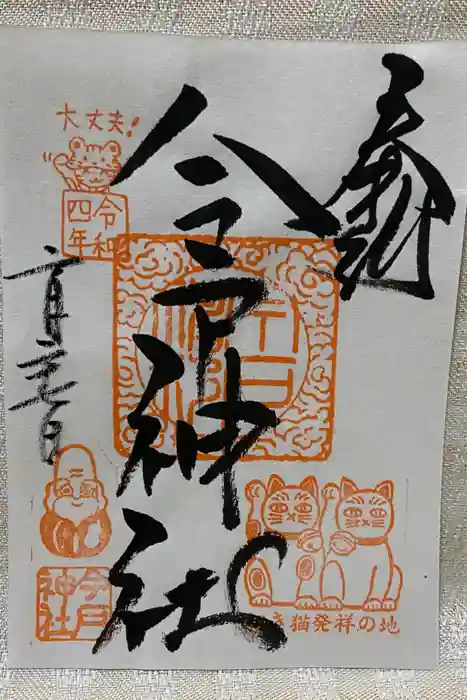 奉拝
今戸神社
大丈夫!
令和
四年
今戸
神社
き猫発祥の地